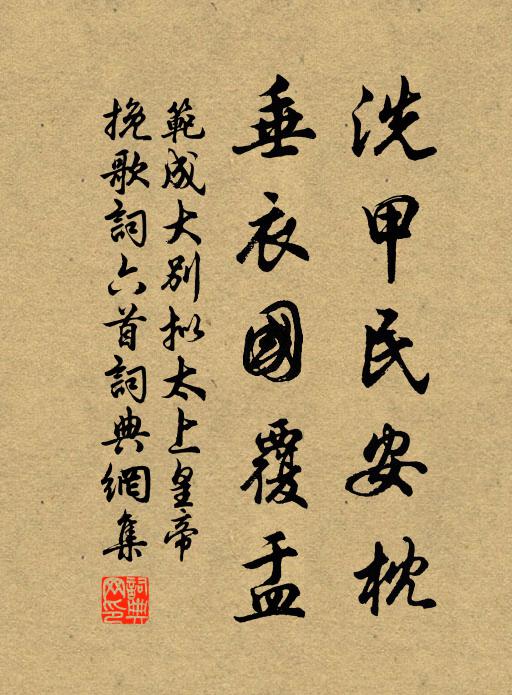 洗甲民安枕
垂衣國覆盂
範成大別擬太上皇帝
挽歌詞六首詞典網集
詞典
网印